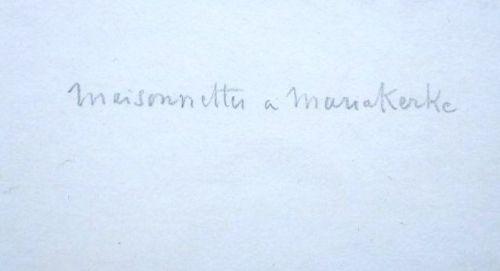 Maisonnettes a Mariakerke